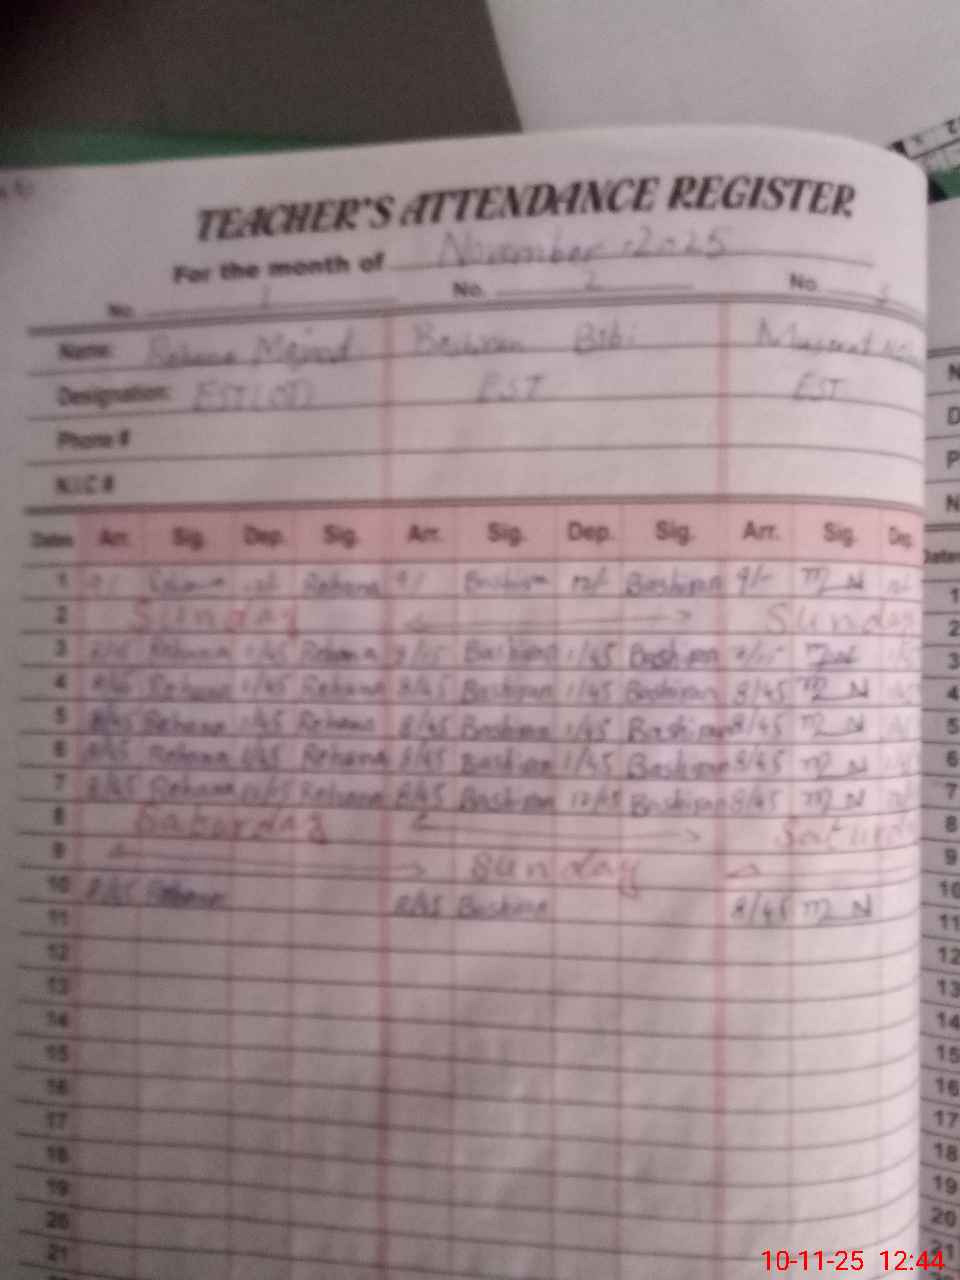 TEACHER'S ATTENDANCE REGISTER
For the month of November 2025
No. 1 No. 2 No. 3
Name: Rehana Bashiran Bibi
Designation: EST EST EST
Phone #
N.I.C #
Dates Arr. Sig. Dep. Sig. Arr. Sig. Dep. Sig. Arr. Sig. Dep.
1 9/- Rehana Rehana 9/- Bashiran 12/- Bashiran 9/- M N
2 Sunday Sunday
3 Rehana 1/45 Rehana Bashiran 1/45 Bashiran M N
4 8/45 Rehana 1/45 Rehana 8/45 Bashiran 1/45 Bashiran 8/45 M N
5 8/45 Rehana 1/45 Rehana 8/45 Bashiran 1/45 Bashiran 8/45 M N
6 8/45 Rehana 1/45 Rehana 8/45 Bashiran 1/45 Bashiran 8/45 M N
7 8/45 Rehana Rehana 8/45 Bashiran Bashiran 8/45 M N
8 Saturday
9 Sunday
10 8/45 Rehana 8/45 Bashiran 8/45 M N
11
12
13
14
15
16
17
18
19
20
21
N
D
P
N
Dates
1
2
3
4
5
6
7
8
9
10
11
12
13
14
15
16
17
18
19
20
21
10-11-25 12:44